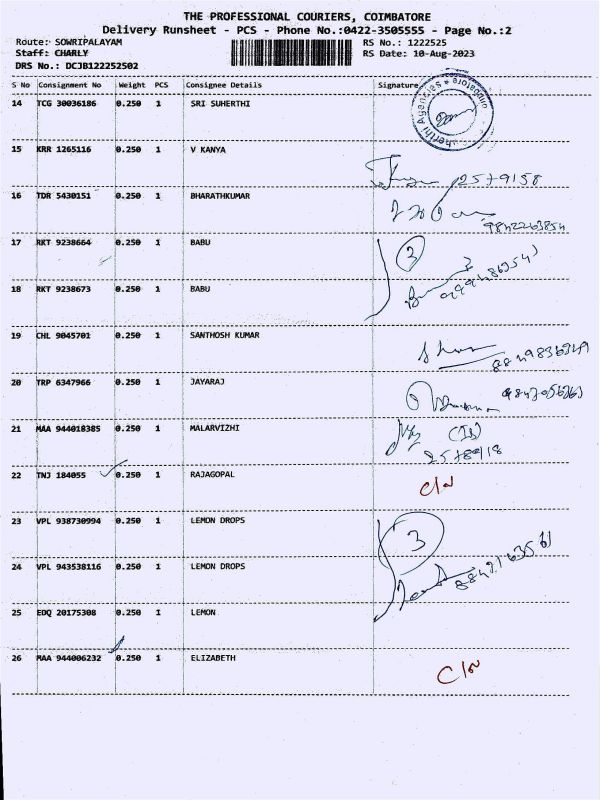 THE PROFESSIONAL COURIERS, COIMBATORE
Delivery Runsheet - PCS - Phone No.:0422-3505555 - Page No.:2
Route: SOWRIPALAYAM RS No.: 1222525
Staff: CHARLY RS Date: 10-Aug-2023
DRS No.: DCJB122252502
S No Consignment No Weight PCS Consignee Details Signature
14 TCG 30036186 0.250 1 SRI SUHERTHI
15 KRR 1265116 0.250 1 V KANYA
2579158
16 TDR 5430151 0.250 1 BHARATHKUMAR
9842263854
17 RKT 9238664 0.250 1 BABU
3
18 RKT 9238673 0.250 1 BABU
19 CHL 9045701 0.250 1 SANTHOSH KUMAR
20 TRP 6347966 0.250 1 JAYARAJ
21 MAA 944018385 0.250 1 MALARVIZHI
22 TNJ 184055 0.250 1 RAJAGOPAL
C/N
23 VPL 938730994 0.250 1 LEMON DROPS
3
24 VPL 943538116 0.250 1 LEMON DROPS
25 EDQ 20175308 0.250 1 LEMON
26 MAA 944006232 0.250 1 ELIZABETH
C/N